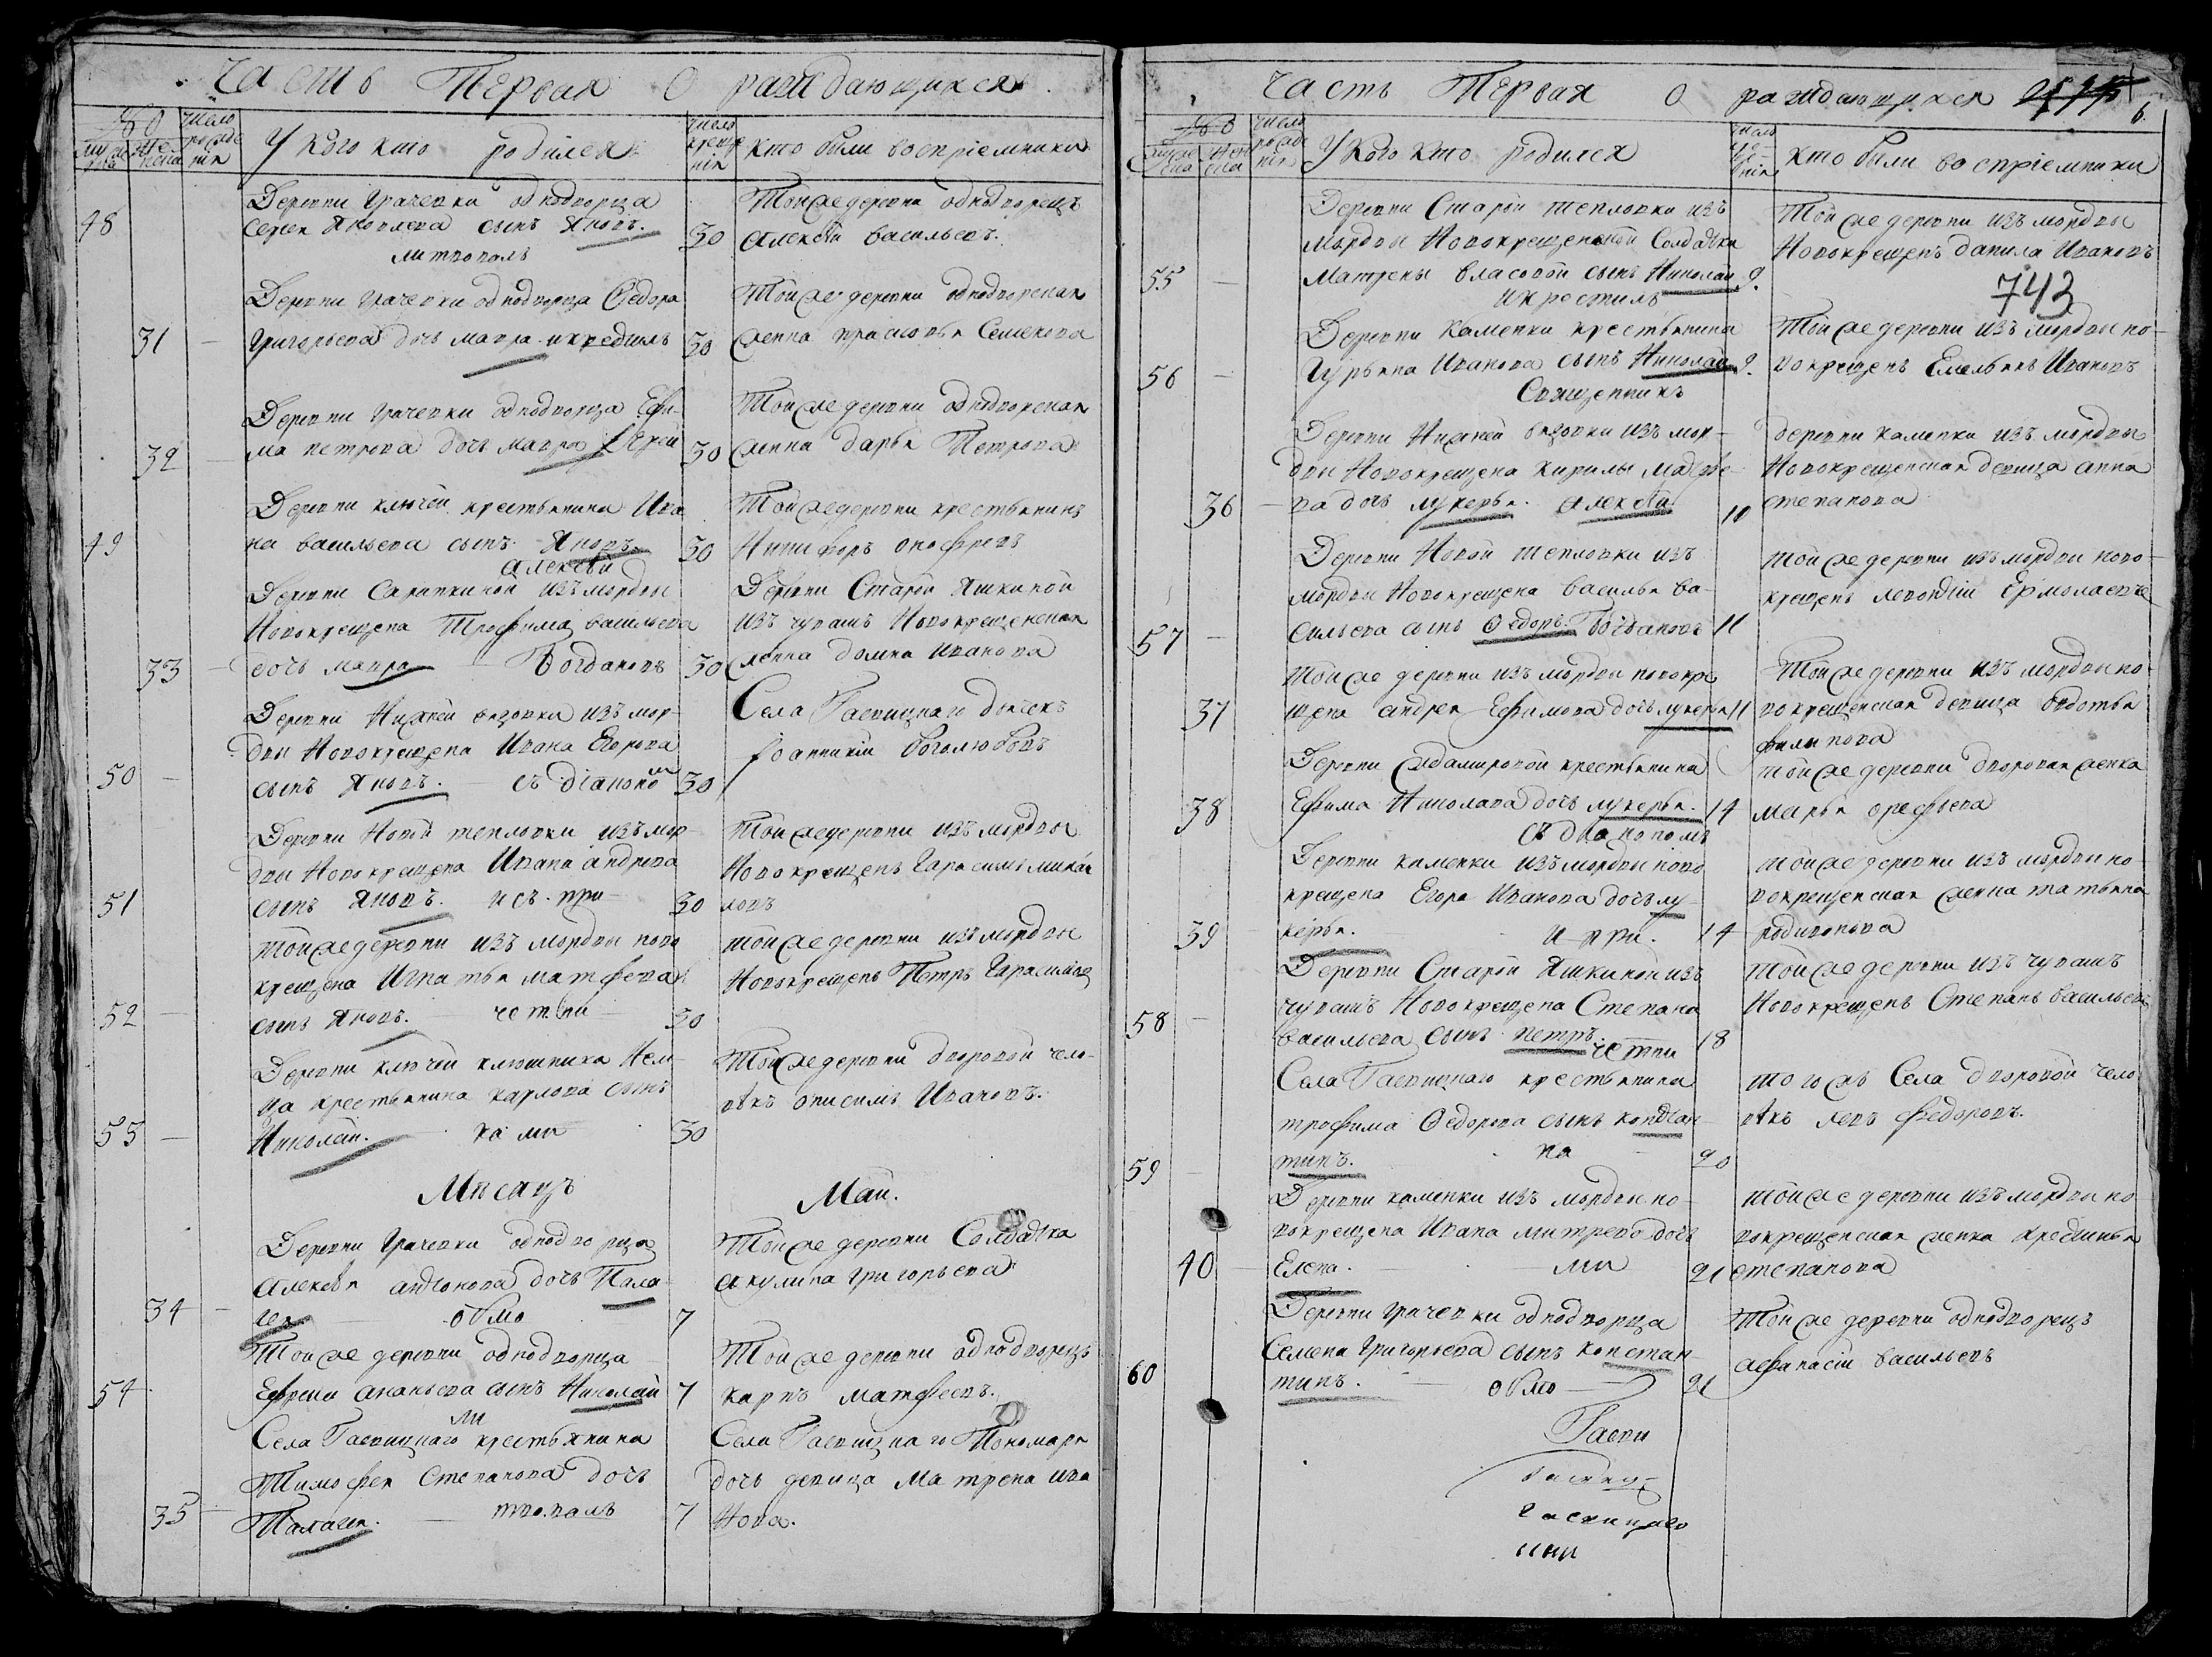 Часть Первая о раждающихся
число рожденія
У кого кто родился
число крещенія
кто были воспріемники
48
Деревни Грачевки однодворца
Семена Яковлева сынъ Яковъ. 30
митрополъ
Той же деревни однодворецъ
Алексѣй Васильевъ.
31
Деревни Грачевки однодворца Ѳедора
Григорьева дочь Мавра. и крестилъ 30
Той же деревни однодворская
женка Прасковья Семенова
32
Деревни Грачевки однодворца Ефи-
ма Петрова дочь Мавра Іерей 30
Той же деревни однодворская
женка Дарья Петрова
49
Деревни Ключей крестьянина Ива
на Васильева сынъ Яковъ. 30
Алексѣй
Той же деревни крестьянинъ
Никифоръ Онофревъ
33
Деревни изъ мордвы
Новокрещена Трофима Васильева
дочь Мавра Богдановъ 30
Деревни Старой Яшкиной
изъ чувашъ Новокрещенская
женка Домна Иванова
50
Деревни Нижней Вязовки изъ мор-
двы Новокрещена Ивана Егорова
сынъ Яковъ. съ діакономъ 30
Села Гасвицкаго дьячекъ
Іоанникій Боголюбовъ
51
Деревни Новой тепловки изъ мор-
двы Новокрещена Ивана Андрева
сынъ Яковъ. и съ при- 30
Той же деревни изъ мордвы
Новокрещенъ Гарасимъ Михай
ловъ
52
той же деревни изъ мордвы ново
крещена Игнатья Матфева
сынъ Яковъ. четни 30
той же деревни изъ мордвы
Новокрещенъ Петръ Гарасимовъ
53
Деревни Ключей ключника Нем-
ца крестьянина Карлова сынъ
Николай. ками 30
Той же деревни дворовой чело-
вѣкъ Онисимъ Ивановъ.
Мѣсяцъ Май.
34
Деревни Грачевки однодворца
Алексѣя Антонова дочь Пала-
гея обмо 7
Той же деревни Солдатка
Акулина Григорьева
54
Той же деревни однодворца
Ефрема Ананьева сынъ Николай 7
ли
Той же деревни однодворецъ
Карпъ Матфеевъ.
35
Села Гасвицкаго крестьянина
Тимофея Степанова дочь
Палагея. твовалъ 7
Села Гасвицкаго Пономаря
дочь девица Матрена Ива
нова.
Часть Первая о раждающихся
6.
число рожденія
У кого кто родился
кто были воспріемники
55
Деревни Старой тепловки изъ
мордвы Новокрещенской Солдатки
Матрены Власовой сынъ Николай 9.
и крестилъ
Той же деревни изъ мордвы
Новокрещенъ Данила Ивановъ
743
56
Деревни Каменки крестьянина
Гурьяна Иванова сынъ Николай 9.
Священникъ
Той же деревни изъ мордвы но-
вокрещенъ Емельянъ Ивановъ
36
Деревни Нижней Вязовки изъ мор-
двы Новокрещена Кирилы Матфе-
ва дочь Лукерья. Алексѣй 10
деревни Каменки изъ мордвы
Новокрещенская девица Анна
Степанова
57
Деревни Новой тепловки изъ
мордвы Новокрещена Василья Ва-
сильева сынъ Ѳедоръ. Богдановъ 11
той же деревни изъ мордвы ново-
крещенъ Леонтій Ермолаевъ
37
той же деревни изъ мордвы новокре
щена Андрея Ефимова дочь Лукерья 11
Той же деревни изъ мордвы но-
вокрещенская девица Авдотья
Филипова
38
Деревни крестьянина
Ефима Николаева дочь Лукерья. 14
съ діакономъ
той же деревни дворовая женка
Марья Орефьева
39
Деревни Каменки изъ мордвы ново
крещена Егора Иванова дочь Лу-
керья. и при. 14
той же деревни изъ мордвы но-
вокрещенская женка Татьяна
Родионова
58
Деревни Старой Яшкиной изъ
чувашъ Новокрещена Степана
Васильева сынъ Петръ. 18
четни
Той же деревни изъ чувашъ
Новокрещенъ Степанъ Васильевъ
59
Села Гасвицкаго крестьянина
Трофима Ѳедорова сынъ Констан-
тинъ. ка 20
того жъ Села дворовой чело
вѣкъ Левъ Федоровъ.
40
Деревни Каменки изъ мордвы но-
вокрещена Ивана Митрева дочь
Елена. ми 21
той же деревни изъ мордвы но
вокрещенская женка Кресинья
Степанова
60
Деревни Грачевки однодворца
Семена Григорьева сынъ Констан-
тинъ. обмо 21
Той же деревни однодворецъ
Афанасій Васильевъ